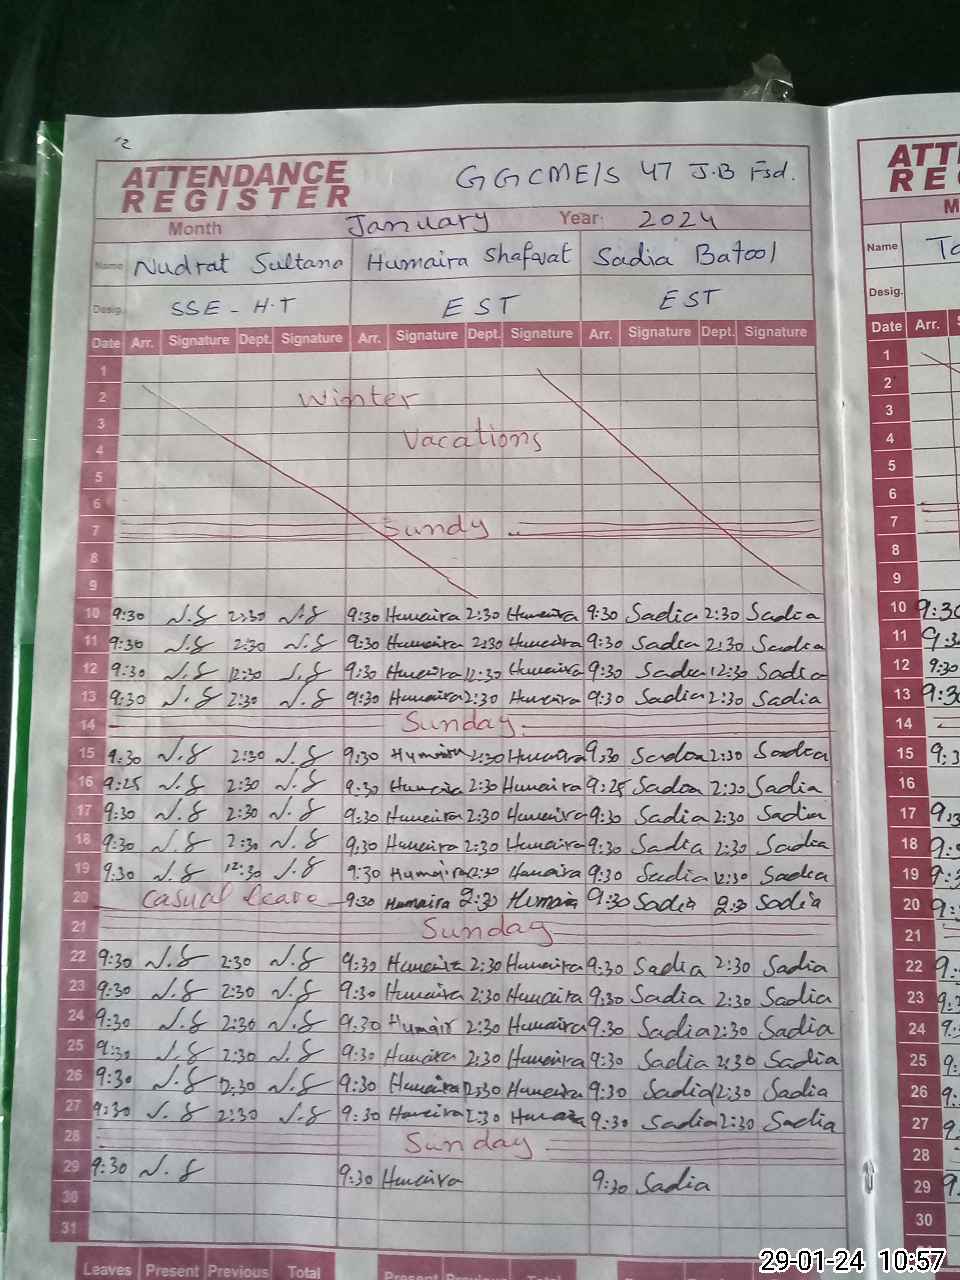 ATTENDANCE
REGISTER
GGCME/S 47 J.B Fsd.
Month January Year 2024
Name Nudrat Sultana Humaira Shafavat Sadia Batool
Desig. SSE - H.T EST EST
Date Arr. Signature Dept. Signature Arr. Signature Dept. Signature Arr. Signature Dept. Signature
1
2 Winter
3
4 Vacations
5
6
7 Sundy
8
9
10 9:30 N.S 2:30 N.S 9:30 Humaira 2:30 Humaira 9:30 Sadia 2:30 Sadia
11 9:30 N.S 2:30 N.S 9:30 Humaira 2:30 Humaira 9:30 Sadia 2:30 Sadia
12 9:30 N.S 12:30 N.S 9:30 Humaira 12:30 Humaira 9:30 Sadia 12:30 Sadia
13 9:30 N.S 2:30 N.S 9:30 Humaira 2:30 Humaira 9:30 Sadia 2:30 Sadia
14 Sunday
15 9:30 N.S 2:30 N.S 9:30 Humaira 2:30 Humaira 9:30 Sadia 2:30 Sadia
16 9:25 N.S 2:30 N.S 9:30 Humaira 2:30 Humaira 9:25 Sadia 2:30 Sadia
17 9:30 N.S 2:30 N.S 9:30 Humaira 2:30 Humaira 9:30 Sadia 2:30 Sadia
18 9:30 N.S 2:30 N.S 9:30 Humaira 2:30 Humaira 9:30 Sadia 2:30 Sadia
19 9:30 N.S 12:30 N.S 9:30 Humaira 12:30 Humaira 9:30 Sadia 12:30 Sadia
20 Casual Leave 9:30 Humaira 2:30 Humaira 9:30 Sadia 2:30 Sadia
21 Sunday
22 9:30 N.S 2:30 N.S 9:30 Humaira 2:30 Humaira 9:30 Sadia 2:30 Sadia
23 9:30 N.S 2:30 N.S 9:30 Humaira 2:30 Humaira 9:30 Sadia 2:30 Sadia
24 9:30 N.S 2:30 N.S 9:30 Humair 2:30 Humaira 9:30 Sadia 2:30 Sadia
25 9:30 N.S 2:30 N.S 9:30 Humaira 2:30 Humaira 9:30 Sadia 2:30 Sadia
26 9:30 N.S 12:30 N.S 9:30 Humaira 12:30 Humaira 9:30 Sadia 12:30 Sadia
27 9:30 N.S 2:30 N.S 9:30 Humaira 2:30 Humaira 9:30 Sadia 2:30 Sadia
28 Sunday
29 9:30 N.S 9:30 Humaira 9:30 Sadia
30
31
Leaves Present Previous Total Present Previous Total
Name
Desig.
Date Arr.
1
2
3
4
5
6
7
8
9
10 9:30
11 9:30
12 9:30
13 9:30
14
15
16
17
18
19
20
21
22
23
24
25
26
27
28
29
30
29-01-24 10:57